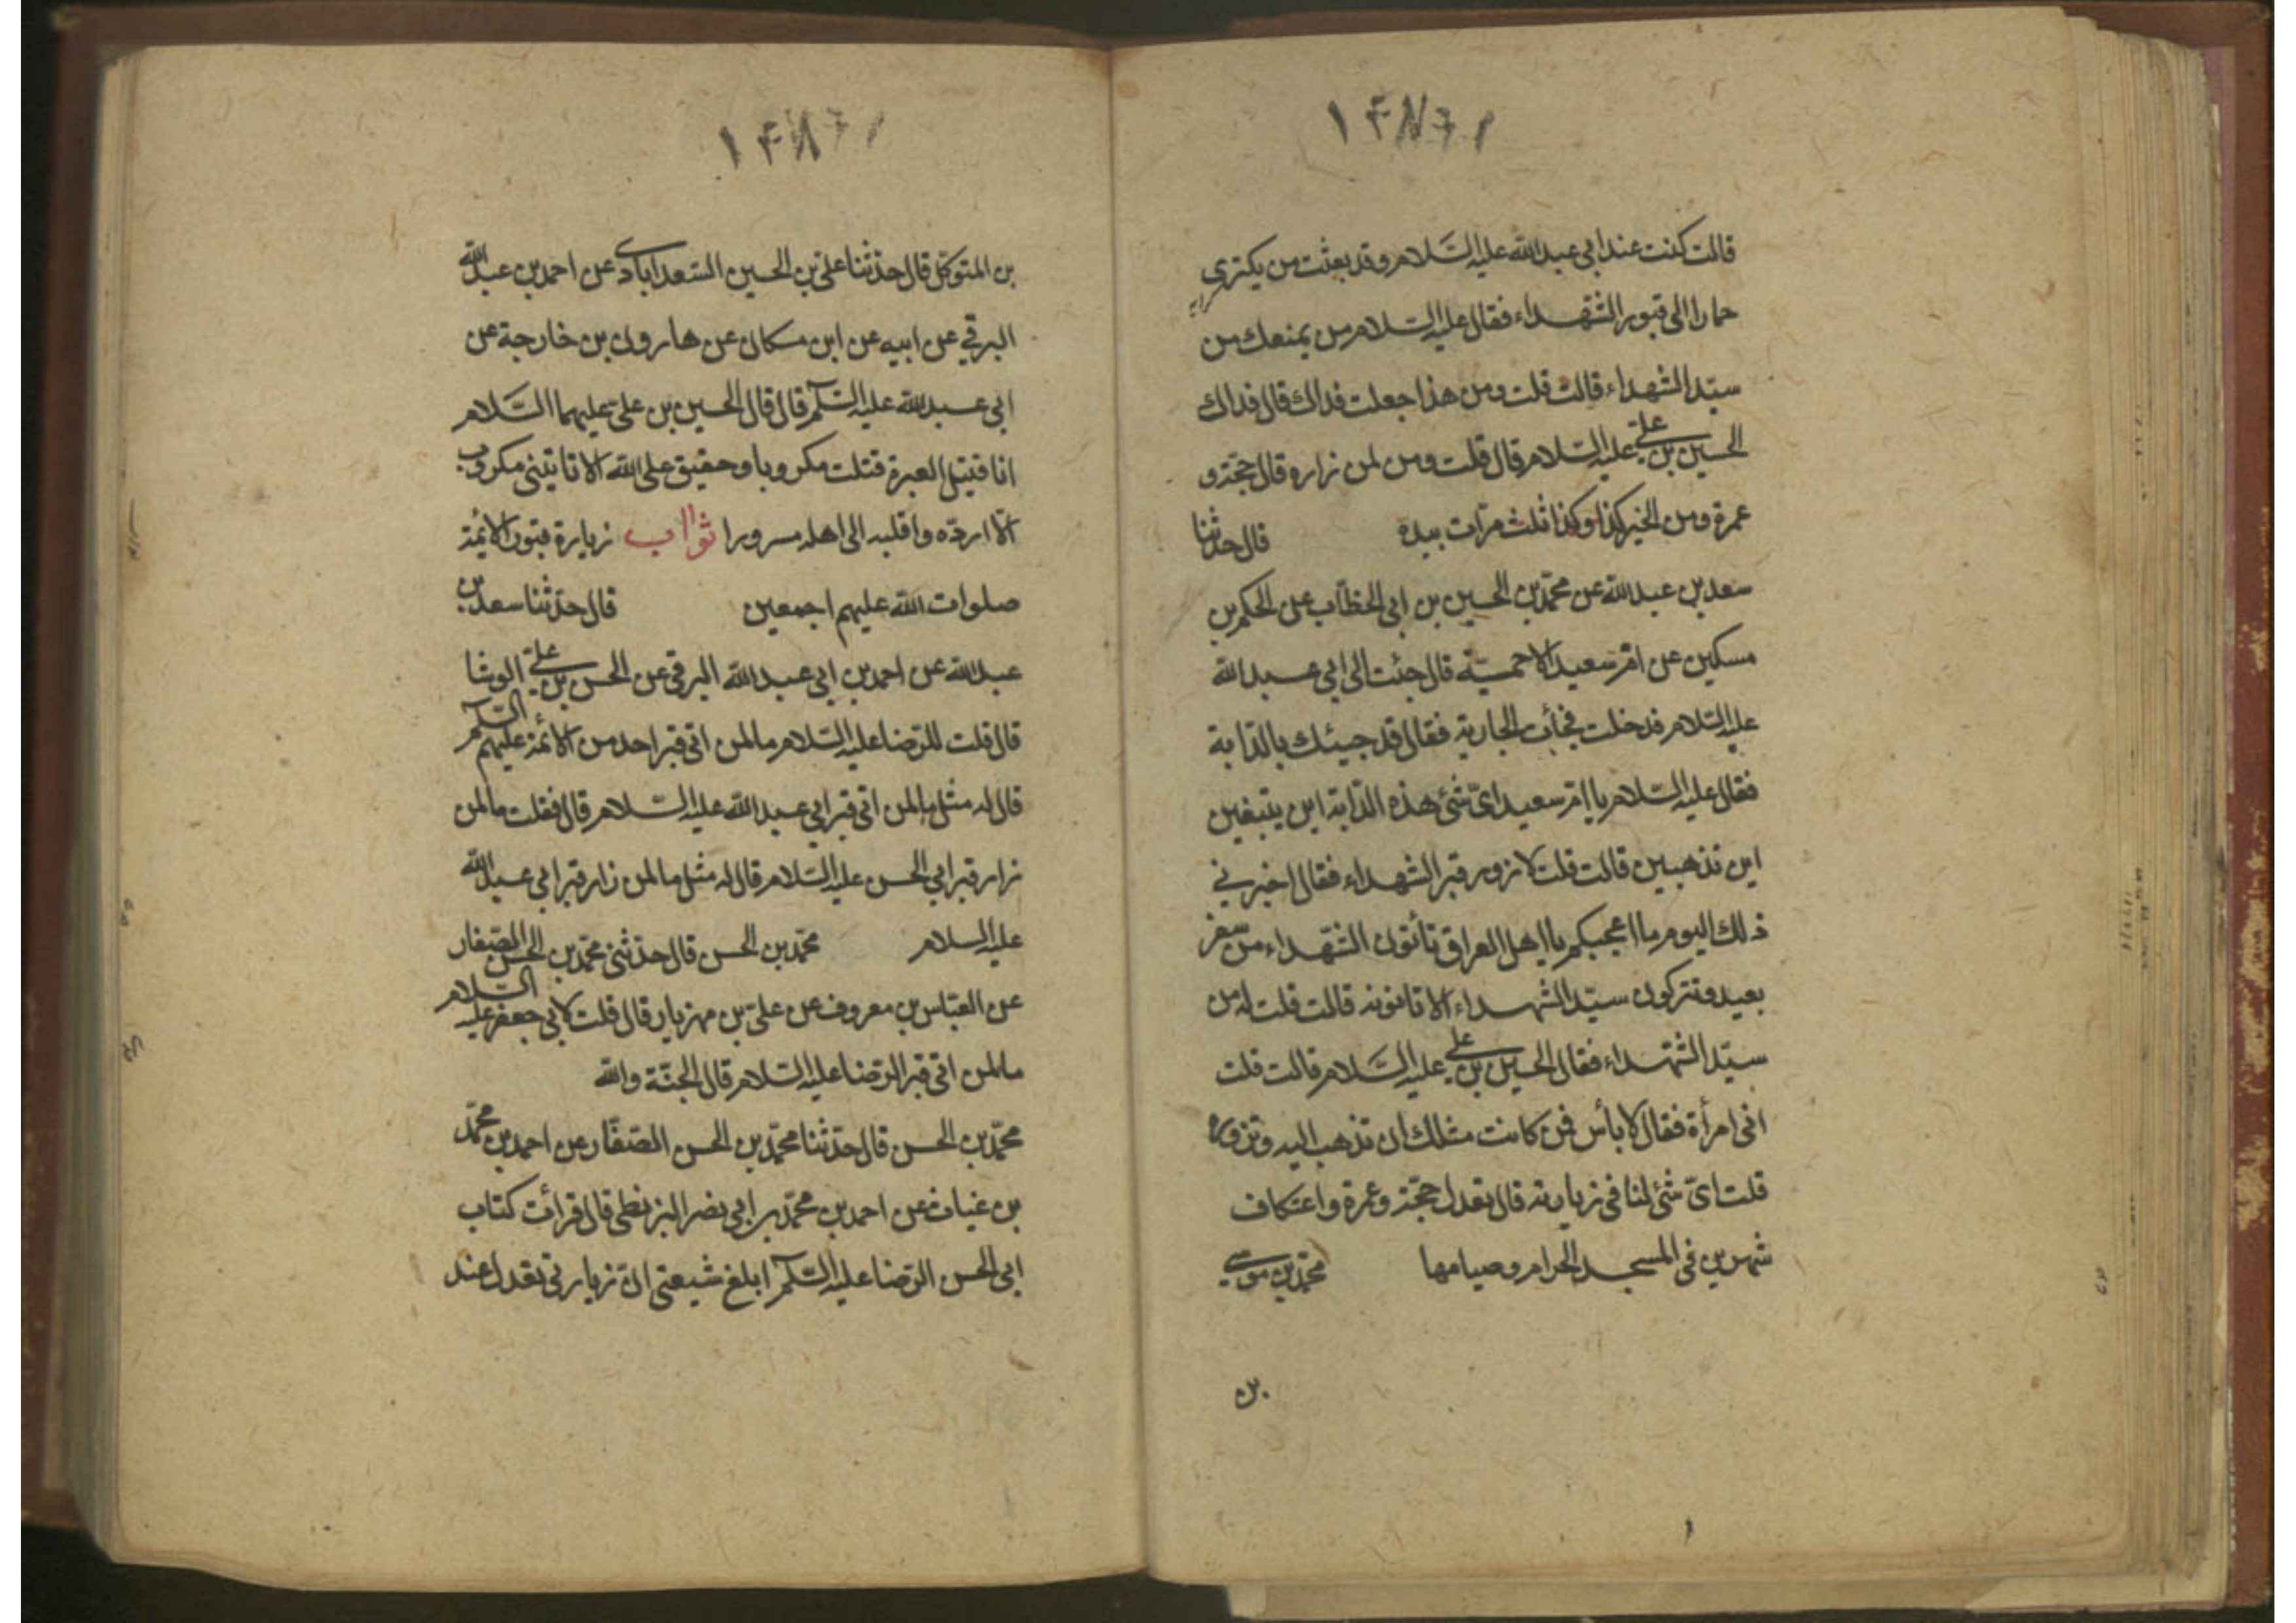 ١۴٨٦١
قالت كنت عند ابي عبد الله عليه السلام وقد بعثت من يكتري
حمارا الى قبور الشهداء فقال عليه السلام من يمنعك من
سيّد الشهداء قالت قلت ومن هذا جعلت فداك قال فداك
الحسين بن علي عليه السلام قال قلت ومن لمن زاره قال حجّة و
عمرة ومن الخير كذا وكذا ثلث مرّات بيده قال حدثنا
سعد بن عبد الله عن محمّد بن الحسين بن ابي الخطّاب عن الحكم بن
مسكين عن امّ سعيد الاحمسيّة قال جئت الى ابي عبد الله
عليه السلام فدخلت فجأت الجارية فقال قد جيئك بالدّابة
فقال عليه السلام يا امّ سعيد ايّ شئ هذه الدّابة اين يتبغين
اين تذهبين قالت قلت لازور قبر الشهداء فقال اخبريني
ذلك اليوم ما اعجبكم يا اهل العراق تأتون الشهداء من سفر
بعيد وتتركون سيّد الشهداء الا تاتونه قالت قلت له من
سيّد الشهداء فقال الحسين بن علي عليه السلام قالت قلت
انى امرأة فقال لا بأس فمن كانت مثلك ان تذهب اليه وتزوره
قلت ايّ شئ لنا في زيارته قال تعدل حجّة وعمرة واعتكاف
شهرين في المسجد الحرام وصيامها محمّد بن موسى
بن
١۴٨٦١
بن المتوكّل قال حدّثنا عليّ بن الحسين السّعدابادى عن احمد بن عبد الله
البرقي عن ابيه عن ابن مسكان عن هارون بن خارجة عن
ابي عبد الله عليه السّلم قال قال الحسين بن عليّ عليهما السّلام
انا قتيل العبرة قتلت مكروبا وحقيق على الله الا تاتيني مكروب
الّا اردّه واقلبه الى اهله مسرورا ثواب زيارة قبور الائمّة
صلوات الله عليهم اجمعين قال حدّثنا سعد بن
عبد الله عن احمد بن ابي عبد الله البرقي عن الحسن بن علي الوشا
قال قلت للرّضا عليه السّلام ما لمن اتى قبر احد من الائمّة عليهم السّلم
قال له مثل ما لمن اتى قبر ابي عبد الله عليه السّلام قال فقلت ما لمن
زار قبر ابي الحسن عليه السّلام قال له مثل ما لمن زار قبر ابي عبد الله
عليه السلام محمّد بن الحسن قال حدّثني محمّد بن الحسن الصّفار
عن العبّاس بن معروف عن عليّ بن مهزيار قال قلت لابي جعفر عليه السّلام
ما لمن اتى قبر الرّضا عليه السّلام قال الجنّة والله
محمّد بن الحسن قال حدّثنا محمّد بن الحسن الصّفّار عن احمد بن محمّد
بن غياث عن احمد بن محمّد بن ابي نصر البزنطي قال قرأت كتاب
ابي الحسن الرّضا عليه السّلم ابلغ شيعتي انّ زيارتي تعدل عند